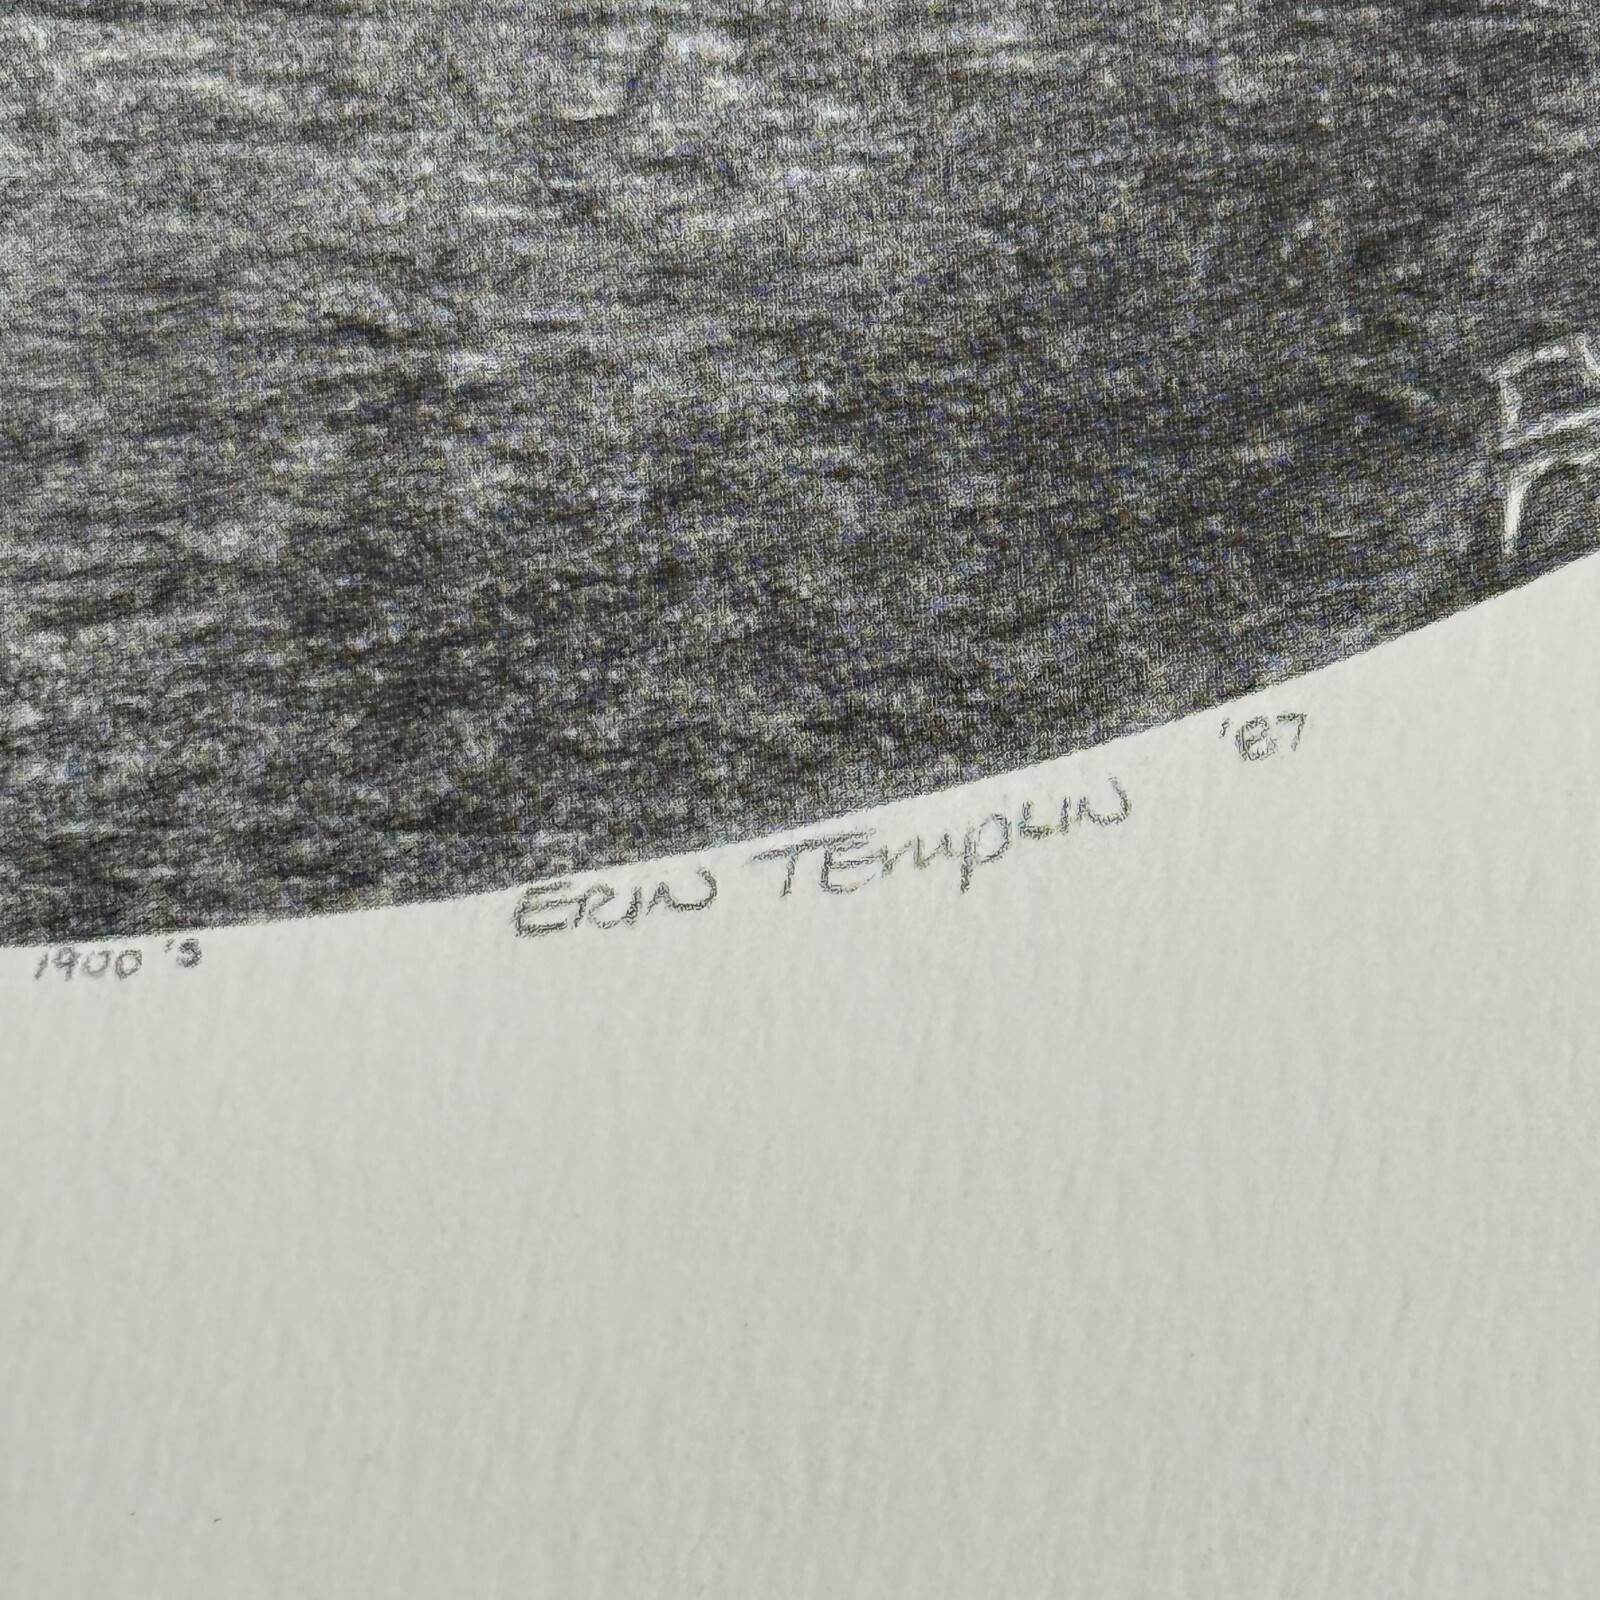 1900's ERIN TEMPLIN '87